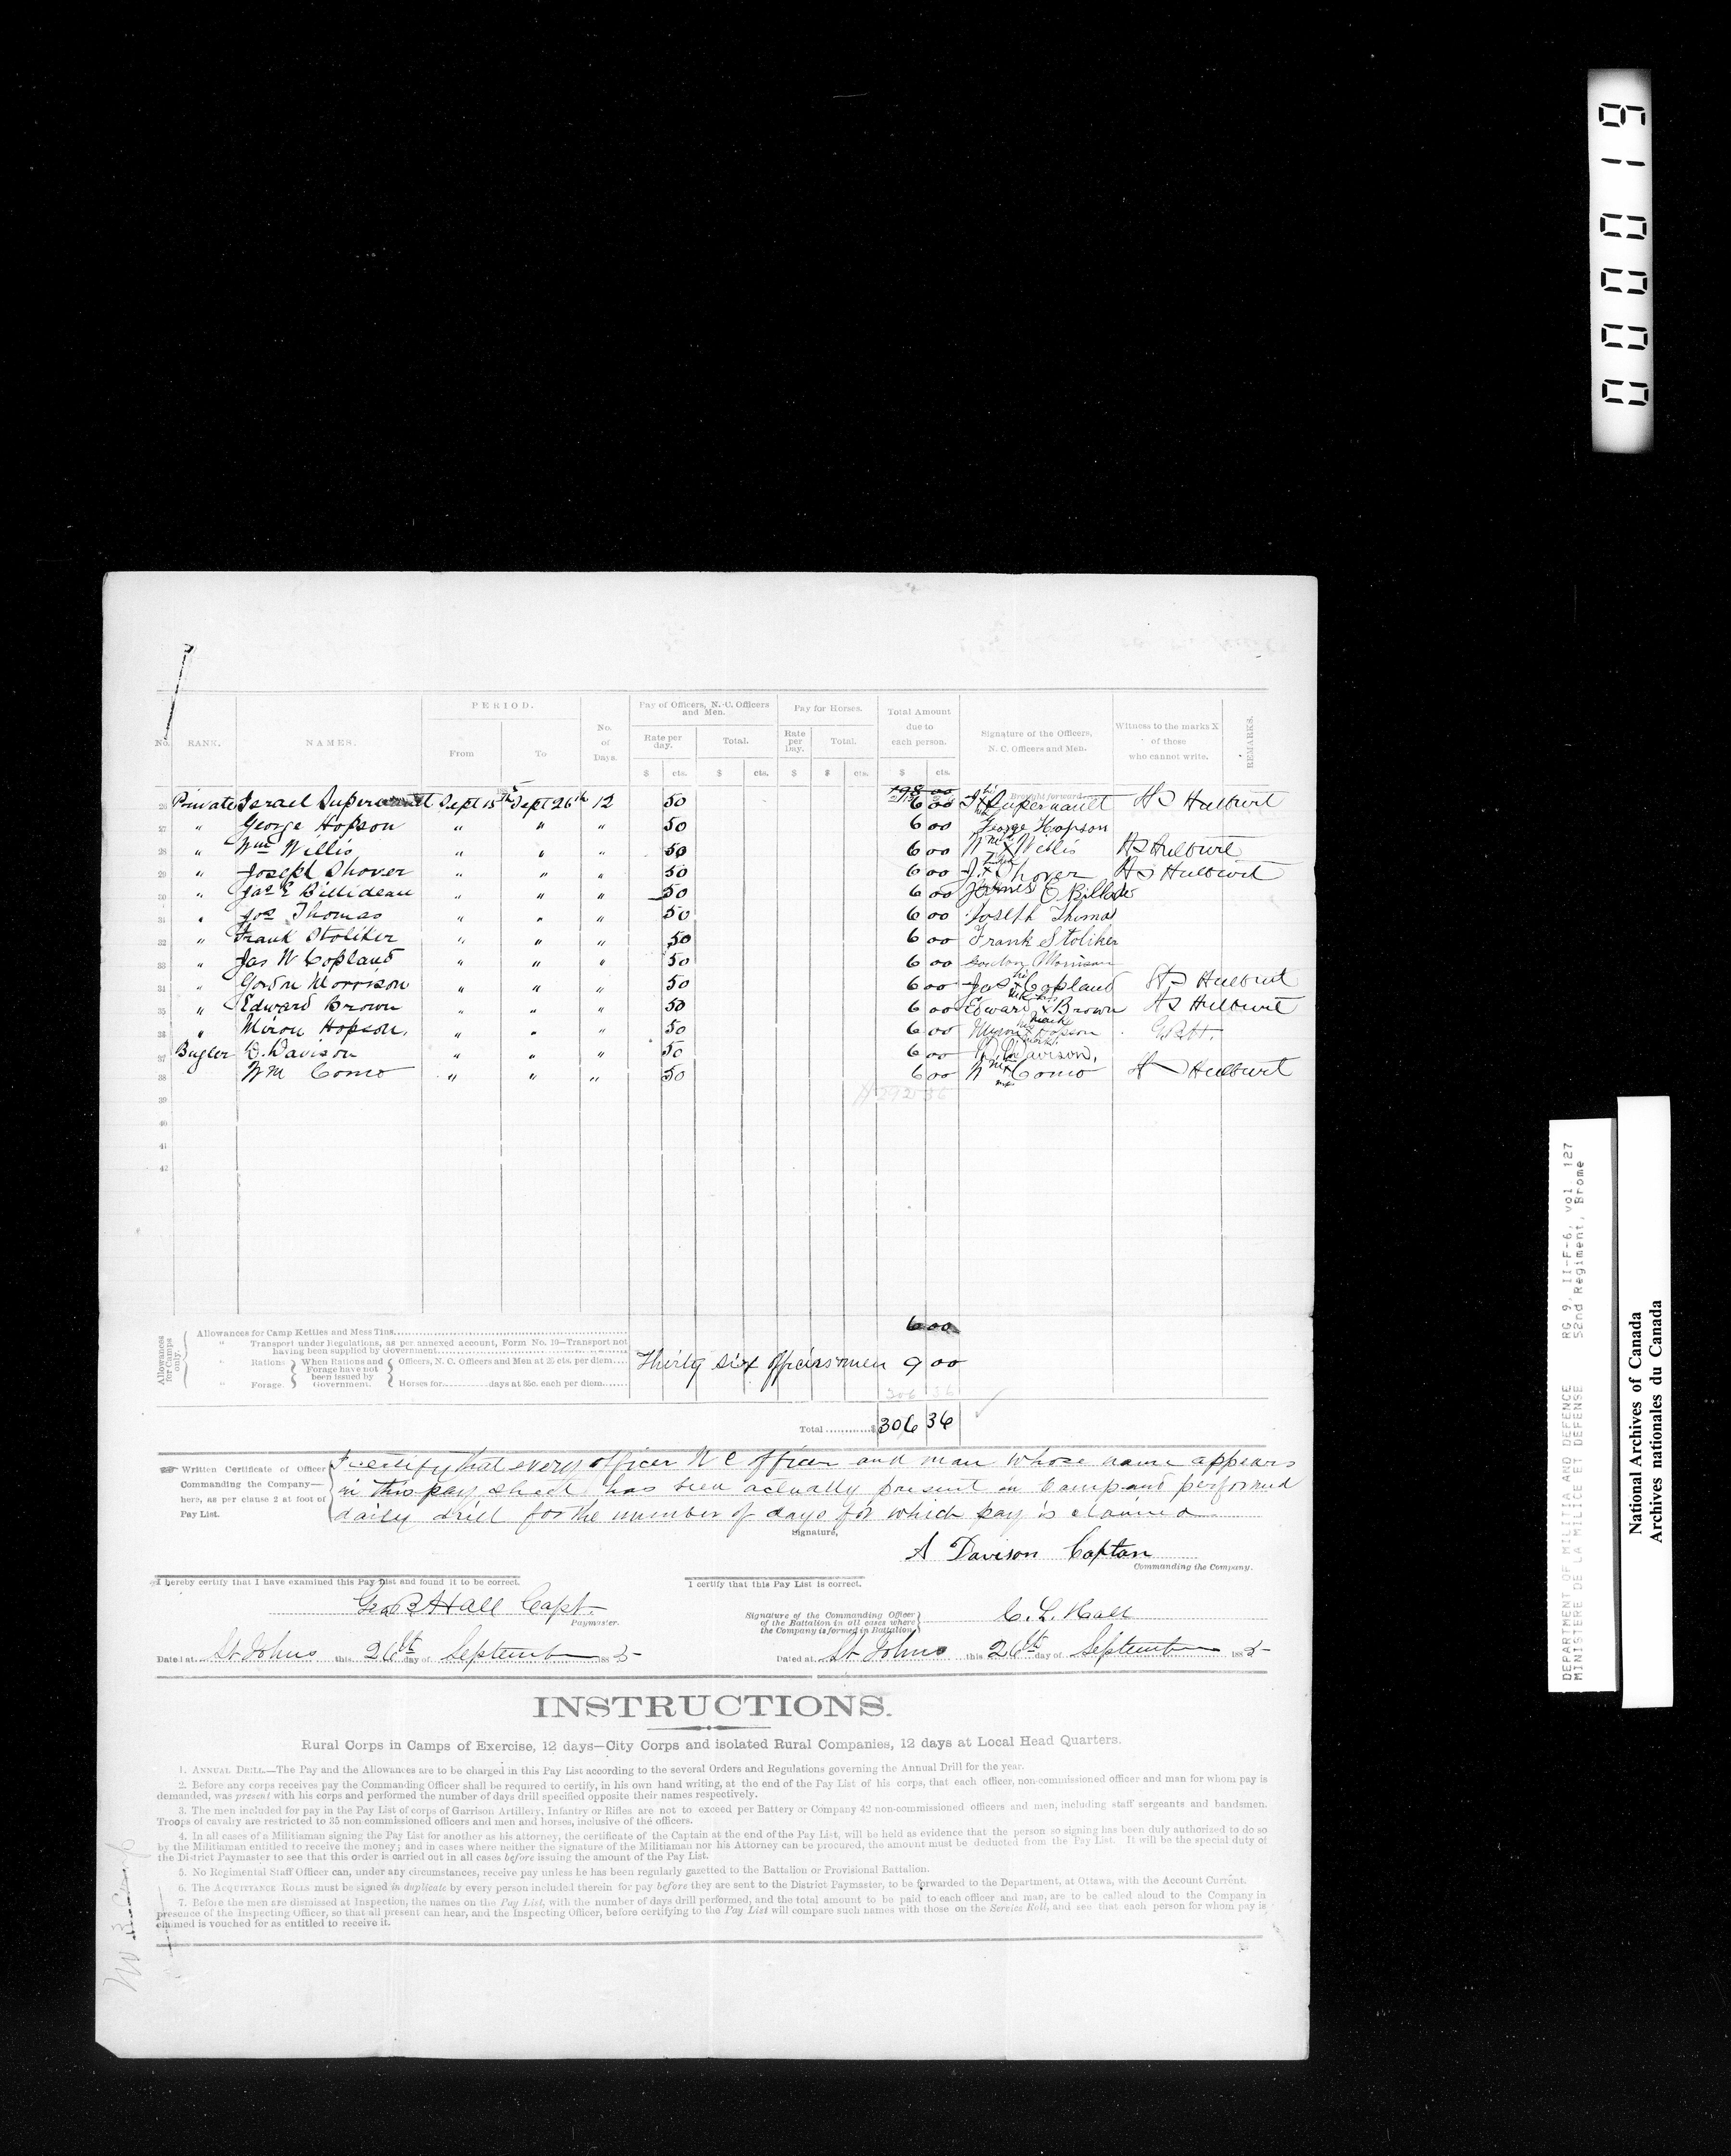 0000019
PERIOD.
Pay of Officers, N.-C. Officers and Men.
Pay for Horses.
Total Amount due to each person.
No.
RANK.
NAMES.
From
To
No. of Days.
Rate per day.
Total.
Rate per Day.
Total.
Signature of the Officers, N. C. Officers and Men.
Witness to the marks X of those who cannot write.
REMARKS.
$ cts. $ cts. $ $ cts. $ cts.
198 00 Brought forward
26 Private Israel Supernault Sept 15th Sept 26th 12 50 6 00 I his x Supernault H S Hulburt
27 " George Hopson " " " 50 6 00 George Hopson
28 " Wm Willis " " " 50 6 00 Wm x Willis H S Hulburt
29 " Joseph Shover " " " 50 6 00 J x Shover H S Hulburt
30 " Jas E Billideau " " " 50 6 00 James E Billdw
31 " Jos Thomas " " " 50 6 00 Joseph Thomas
32 " Frank Stoliker " " " 50 6 00 Frank Stoliker
33 " Jas W Copland " " " 50 6 00 Gordon Morrison
34 " Gordon Morrison " " " 50 6 00 Jas his x Copland H S Hulburt
35 " Edward Brown " " " 50 6 00 Edward his x Brown H S Hulburt
36 " Miron Hopson. " " " 50 6 00 Myron his x mark Hopson
37 Bugler D. Davison " " " 50 6 00 D. Davison.
38 Wm Como " " " 50 6 00 Wm x Como H S Hulburt
39 292 36
40
41
42
Allowances for Camps only.
Allowances for Camp Kettles and Mess Tins 6 00
" Transport under Regulations, as per annexed account, Form No. 16—Transport not having been supplied by Government
" Rations When Rations and Forage have not been issued by Government. Officers, N. C. Officers and Men at 25 cts. per diem Thirty six officers men 9 00
" Forage. Horses for days at 35c. each per diem
306 36
Total $ 306 36
Written Certificate of Officer Commanding the Company—here, as per clause 2 at foot of Pay List.
I certify that every officer N C officer and man whose name appears
in this pay sheet has been actually present in Camp and performed
daily drill for the number of days for which pay is claimed
Signature,
A Davison Captan
Commanding the Company.
I hereby certify that I have examined this Pay List and found it to be correct.
I certify that this Pay List is correct.
Geo B Hall Capt.
Paymaster.
Signature of the Commanding Officer of the Battalion in all cases where the Company is formed in Battalion
C. L. Hall
Dated at St Johns this 26th day of September 1885
Dated at St Johns this 26th day of September 1885
INSTRUCTIONS.
Rural Corps in Camps of Exercise, 12 days—City Corps and isolated Rural Companies, 12 days at Local Head Quarters.
1. ANNUAL DRILL.—The Pay and the Allowances are to be charged in this Pay List according to the several Orders and Regulations governing the Annual Drill for the year.
2. Before any corps receives pay the Commanding Officer shall be required to certify, in his own hand writing, at the end of the Pay List of his corps, that each officer, non-commissioned officer and man for whom pay is
demanded, was present with his corps and performed the number of days drill specified opposite their names respectively.
3. The men included for pay in the Pay List of corps of Garrison Artillery, Infantry or Rifles are not to exceed per Battery or Company 42 non-commissioned officers and men, including staff sergeants and bandsmen.
Troops of cavalry are restricted to 35 non commissioned officers and men and horses, inclusive of the officers.
4. In all cases of a Militiaman signing the Pay List for another as his attorney, the certificate of the Captain at the end of the Pay List, will be held as evidence that the person so signing has been duly authorized to do so
by the Militiaman entitled to receive the money; and in cases where neither the signature of the Militiaman nor his Attorney can be procured, the amount must be deducted from the Pay List. It will be the special duty of
the District Paymaster to see that this order is carried out in all cases before issuing the amount of the Pay List.
5. No Regimental Staff Officer can, under any circumstances, receive pay unless he has been regularly gazetted to the Battalion or Provisional Battalion.
6. The ACQUITTANCE ROLLS must be signed in duplicate by every person included therein for pay before they are sent to the District Paymaster, to be forwarded to the Department, at Ottawa, with the Account Current.
7. Before the men are dismissed at Inspection, the names on the Pay List, with the number of days drill performed, and the total amount to be paid to each officer and man, are to be called aloud to the Company in
presence of the Inspecting Officer, so that all present can hear, and the Inspecting Officer, before certifying to the Pay List will compare such names with those on the Service Roll, and see that each person for whom pay is
claimed is vouched for as entitled to receive it.
DEPARTMENT OF MILITIA AND DEFENCE RG 9, II-F-6, vol. 127
MINISTERE DE LA MILICE ET DEFENSE 52nd Regiment, Brome
National Archives of Canada
Archives nationales du Canada